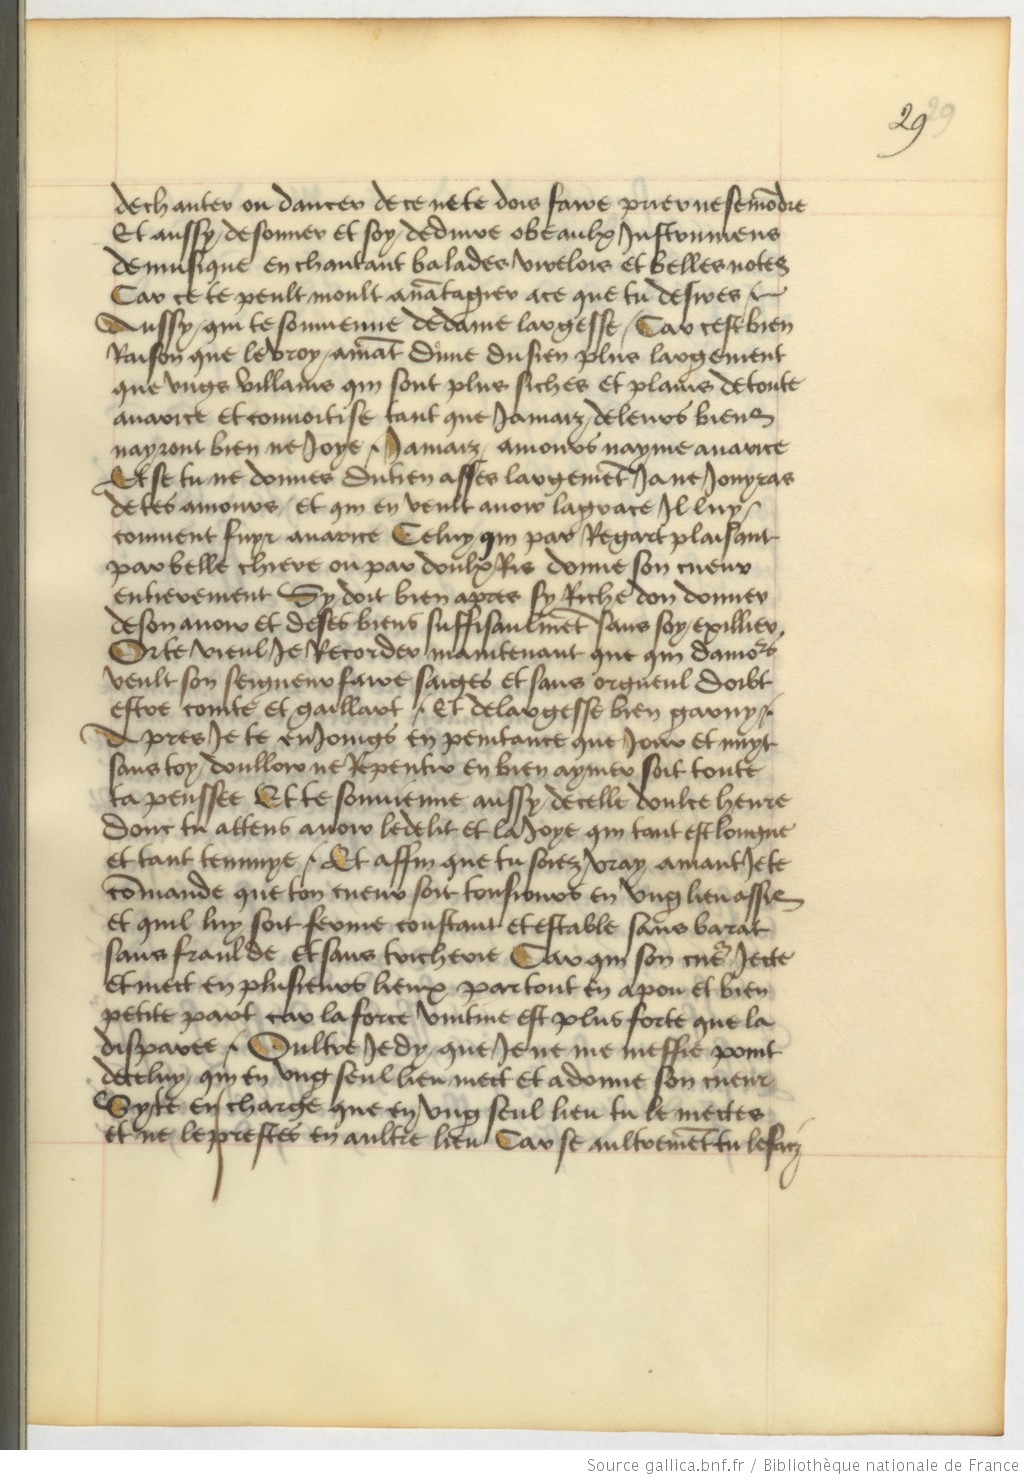 29 29
de chanter ou dancer de ce ne te dois faire prier ne semōdre
Et aussy de sonner et soy deduire obeaulx Instrumens
de musique en chantant balades virelois et belles notes
Car ce te peult moult auātagier a ce que tu desires
Aussy qui te souuienne de dame largesse Car cest bien
Raison que le vroy amāt dōne du sien plus largement
que vngs villains qui sont plus siches et plains de toute
auarice et conuoitise tant que Jamaiz de leurs biens
nayront bien ne Joye Jamaiz amours nayme auarice
Et se tu ne donnes du tien asses largemēt Ja ne Jouyras
de tes amours et qui en veult auoir la grace Il luy
conuient fuyr auarice Celuy qui par Regart plaisant
par belle chiere ou par doulx Ris donne son cueur
entierement Sy doit bien apres sy Riche don donner
de son auoir et de ses biens suffisaulmēt sans soy exillier
Or te vieul Je Recorder maintenant que qui damors
veult son seigneur faire saiges et sans orgueul doibt
estre cointe et gaillart Et de largesse bien garny
Apres Je te enJoings en penitance que Jour et nuyt
sans toy doulloir ne Repentir en bien aymer soit toute
ta penssee Et te souuienne aussy de celle doulce heure
donc tu attens auoir le delit et la Joye qui tant est longue
et tant tennuye Et affin que tu soiez vray amant Je te
cōmande que ton cueur soit tousiours en vng lieu assis
et quil luy soit ferme constant et estable sans barat
sans fraulde et sans tricherie Car qui son cuer Jecte
et mect en plusieurs lieux par tout en a pou et bien
petite part car la force vnitiue est plus forte que la
disparee Oultre Je dy que Je ne me meffie point
de celuy qui en vng seul lieu mect et a donne son cueur
Sy te en charge que en vng seul lieu tu le mectes
et ne le prestes en aultre lieu Car se aultremēt tu le faiz
Source gallica.bnf.fr / Bibliothèque nationale de France